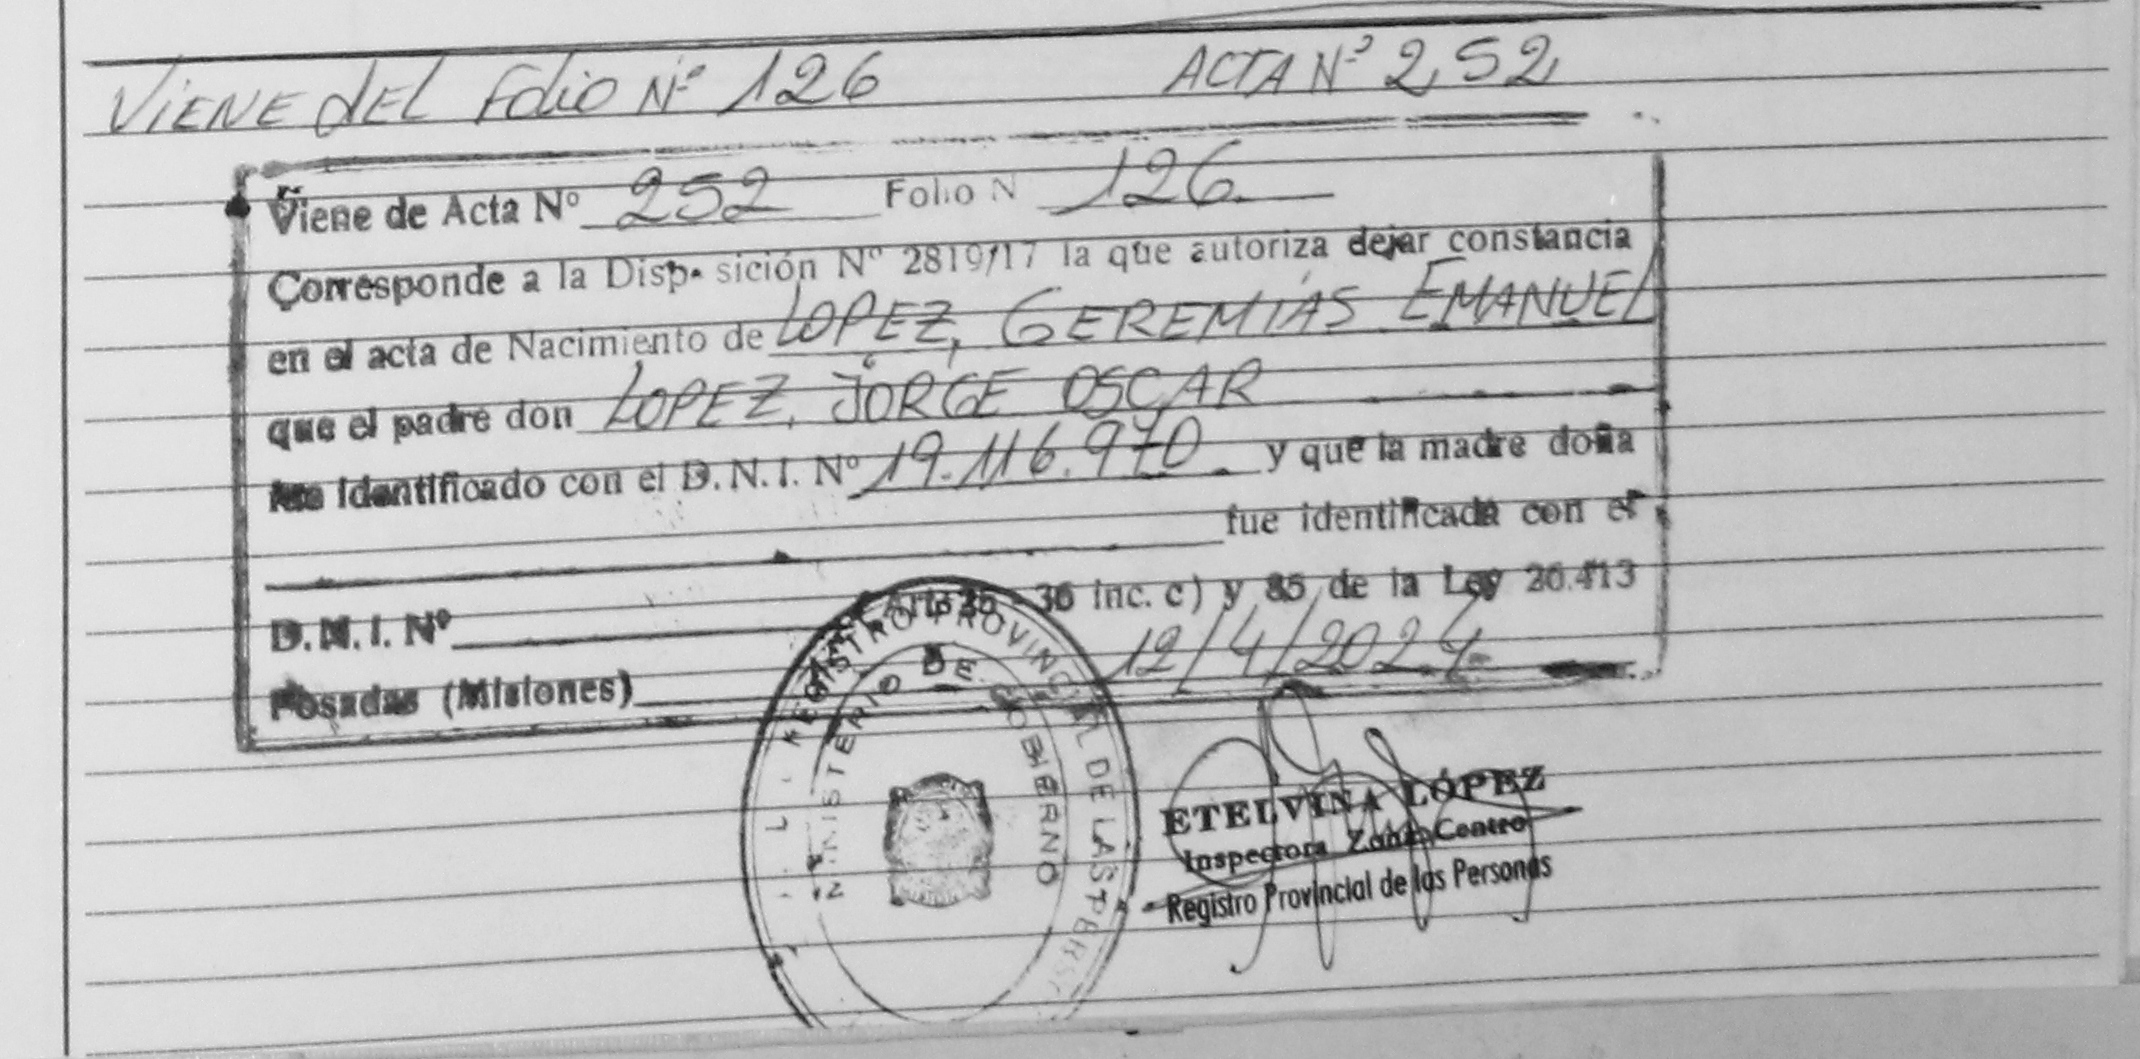 VIENE DEL FOLIO Nº 126 ACTA Nº 252
Viene de Acta Nº 252 Folio N 126
Corresponde a la Disposición Nº 2819/17 la que autoriza dejar constancia
en el acta de Nacimiento de LOPEZ, GEREMIAS EMANUEL
que el padre don LOPEZ, JORGE OSCAR
fue identificado con el D.N.I. Nº 19.116.970 y que la madre doña
fue identificada con el
D.N.I. Nº 36 inc. c) y 85 de la Ley 26.413
Posadas (Misiones) 12/4/2024
REGISTRO PROVINCIAL DE LAS PERS
MINISTERIO DE GOBIERNO
ETELVINA LÓPEZ
Inspectora Zona Centro
Registro Provincial de las Personas